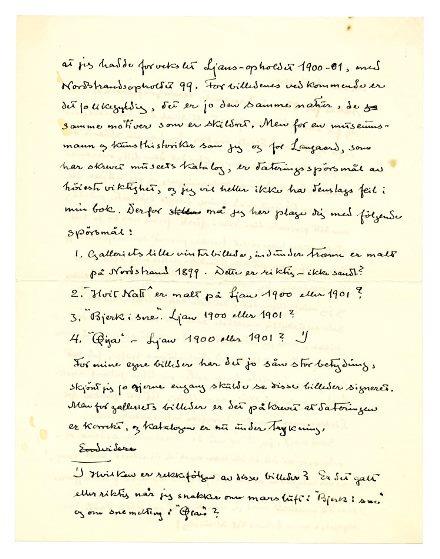 at jeg hadde forvekslet Ljans-opholdet 1900-01, med
Nordstrandsopholdet 99. For billedenes vedkommende er
det jo likegyldig, det er jo den samme natur, de
samme motiver som er skildret. Men for en museums-
mann og kunsthistoriker som jeg og for Langaard, som
har skrevet museets katalog, er dateringsspørsmål av
høieste viktighet, og jeg vil heller ikke ha den slags feil i
min bok. Derfor må jeg her plage dig med følgende
spørsmål:
1. Galleriets lille vinterbillede, inn under trærne er malt
på Nordstrand 1899. Dette er riktig – ikke sandt?
2. "Hvit Natt" er malt på Ljan 1900 eller 1901?
3. "Bjerk i sne". Ljan 1900 eller 1901?
4. "Øya" – Ljan 1900 eller 1901? 1)
For mine egne billeder har det jo sånn stor betydning,
skjønt jeg jo gjerne engang skulde se disse billeder signeret.
Men for galleriets billeder er det påkrevet at dateringen
er korrekt, og katalogen er nu under trykning.
Endvidere
1) Hvilken er rekkefølgen av disse billeder? Er det galt
eller riktig når jeg snakker om marsluft i "Bjerk i sne"
og om snemelting i "Øya"?